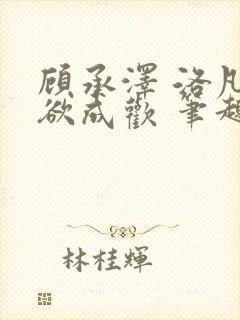 顾承澤 洛凡
欲成歡 筆趣
林桂輝